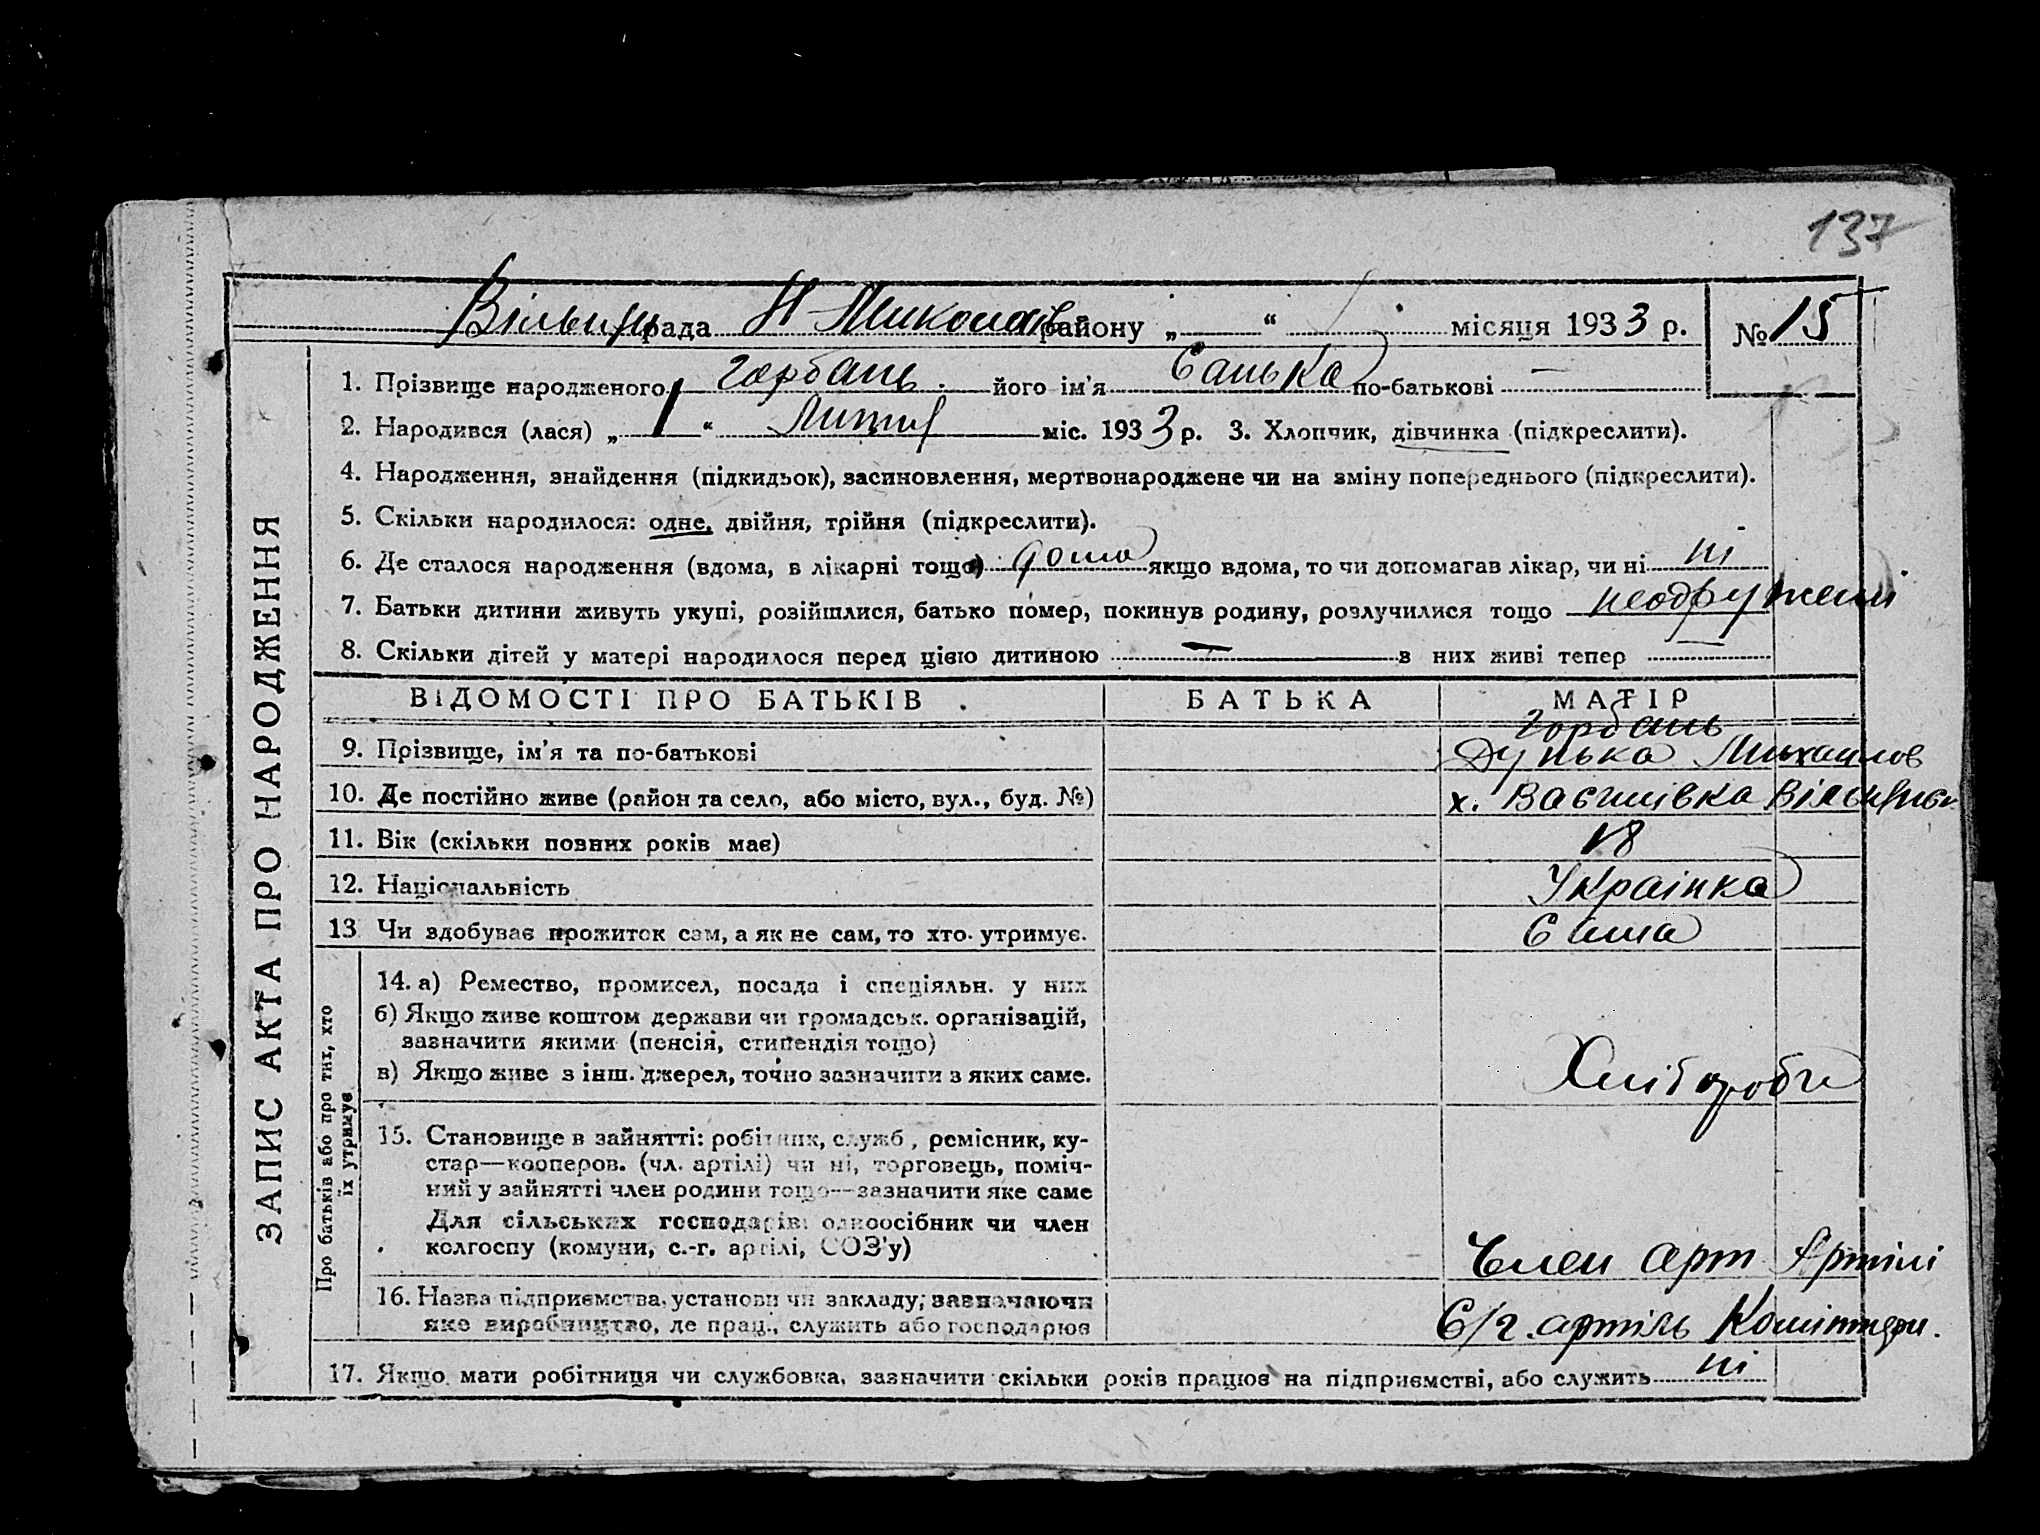 137
рада Н Микола районy „ “ місяця 1933 р. № 15
ЗАПИС АКТА ПРО НАРОДЖЕННЯ
1. Прізвище народженого Горбань його ім'я Санька по-батькові —
2. Народився (лася) „ 1 “ Лютня міс. 1933 р. 3. Хлопчик, дівчинка (підкреслити).
4. Народження, знайдення (підкидьок), засиновлення, мертвонароджене чи на зміну попереднього (підкреслити).
5. Скільки народилося: одне, двійня, трійня (підкреслити).
6. Де сталося народження (вдома, в лікарні тощо) дома якщо вдома, то чи допомагав лікар, чи ні ні
7. Батьки дитини живуть укупі, розійшлися, батько помер, покинув родину, розлучилися тощо неодружені
8. Скільки дітей у матері народилося перед цією дитиною — в них живі тепер —
ВІДОМОСТІ ПРО БАТЬКІВ БАТЬКА МАТІР
Горбань
9. Прізвище, ім'я та по-батькові Дунька Михаилов
10. Де постійно живе (район та село, або місто, вул., буд. №) х. Василівка
11. Вік (скільки повних років має) 18
12. Національність Українка
13. Чи здобуває прожиток сам, а як не сам, то хто утримує. Сама
Про батьків або про тих, хто
їх утримує
14. а) Ремество, промисел, посада і спеціяльн. у них
б) Якщо живе коштом держави чи громадськ. організацій,
зазначити якими (пенсія, стипендія тощо)
в) Якщо живе з інш. джерел, точно зазначити з яких саме.
15. Становище в зайнятті: робітник, служб., ремісник, ку-
стар—кооперов. (чл. артілі) чи ні, торговець, поміч-
ний у зайнятті член родини тощо—зазначити яке саме
Для сільських господарів: одноосібник чи член
колгоспу (комуни, с.-г. артілі, СОЗ'у) Член арт Артілі
16. Назва підприємства, установи чи закладу, зазначаючи С/г. артіль
яке виробництво, де прац., служить або господарює
17. Якщо мати робітниця чи службовка, зазначити скільки років працює на підприємстві, або служить ні